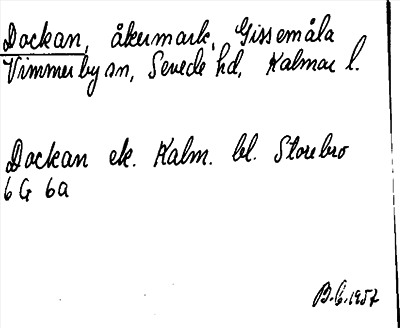 Dockan, åkermark, Gissemåla
Vimmerby sn, Sevede hd, Kalmar l.
Dockan ek. Kalm. bl. Storebro
6 G 6a
B.G. 1957